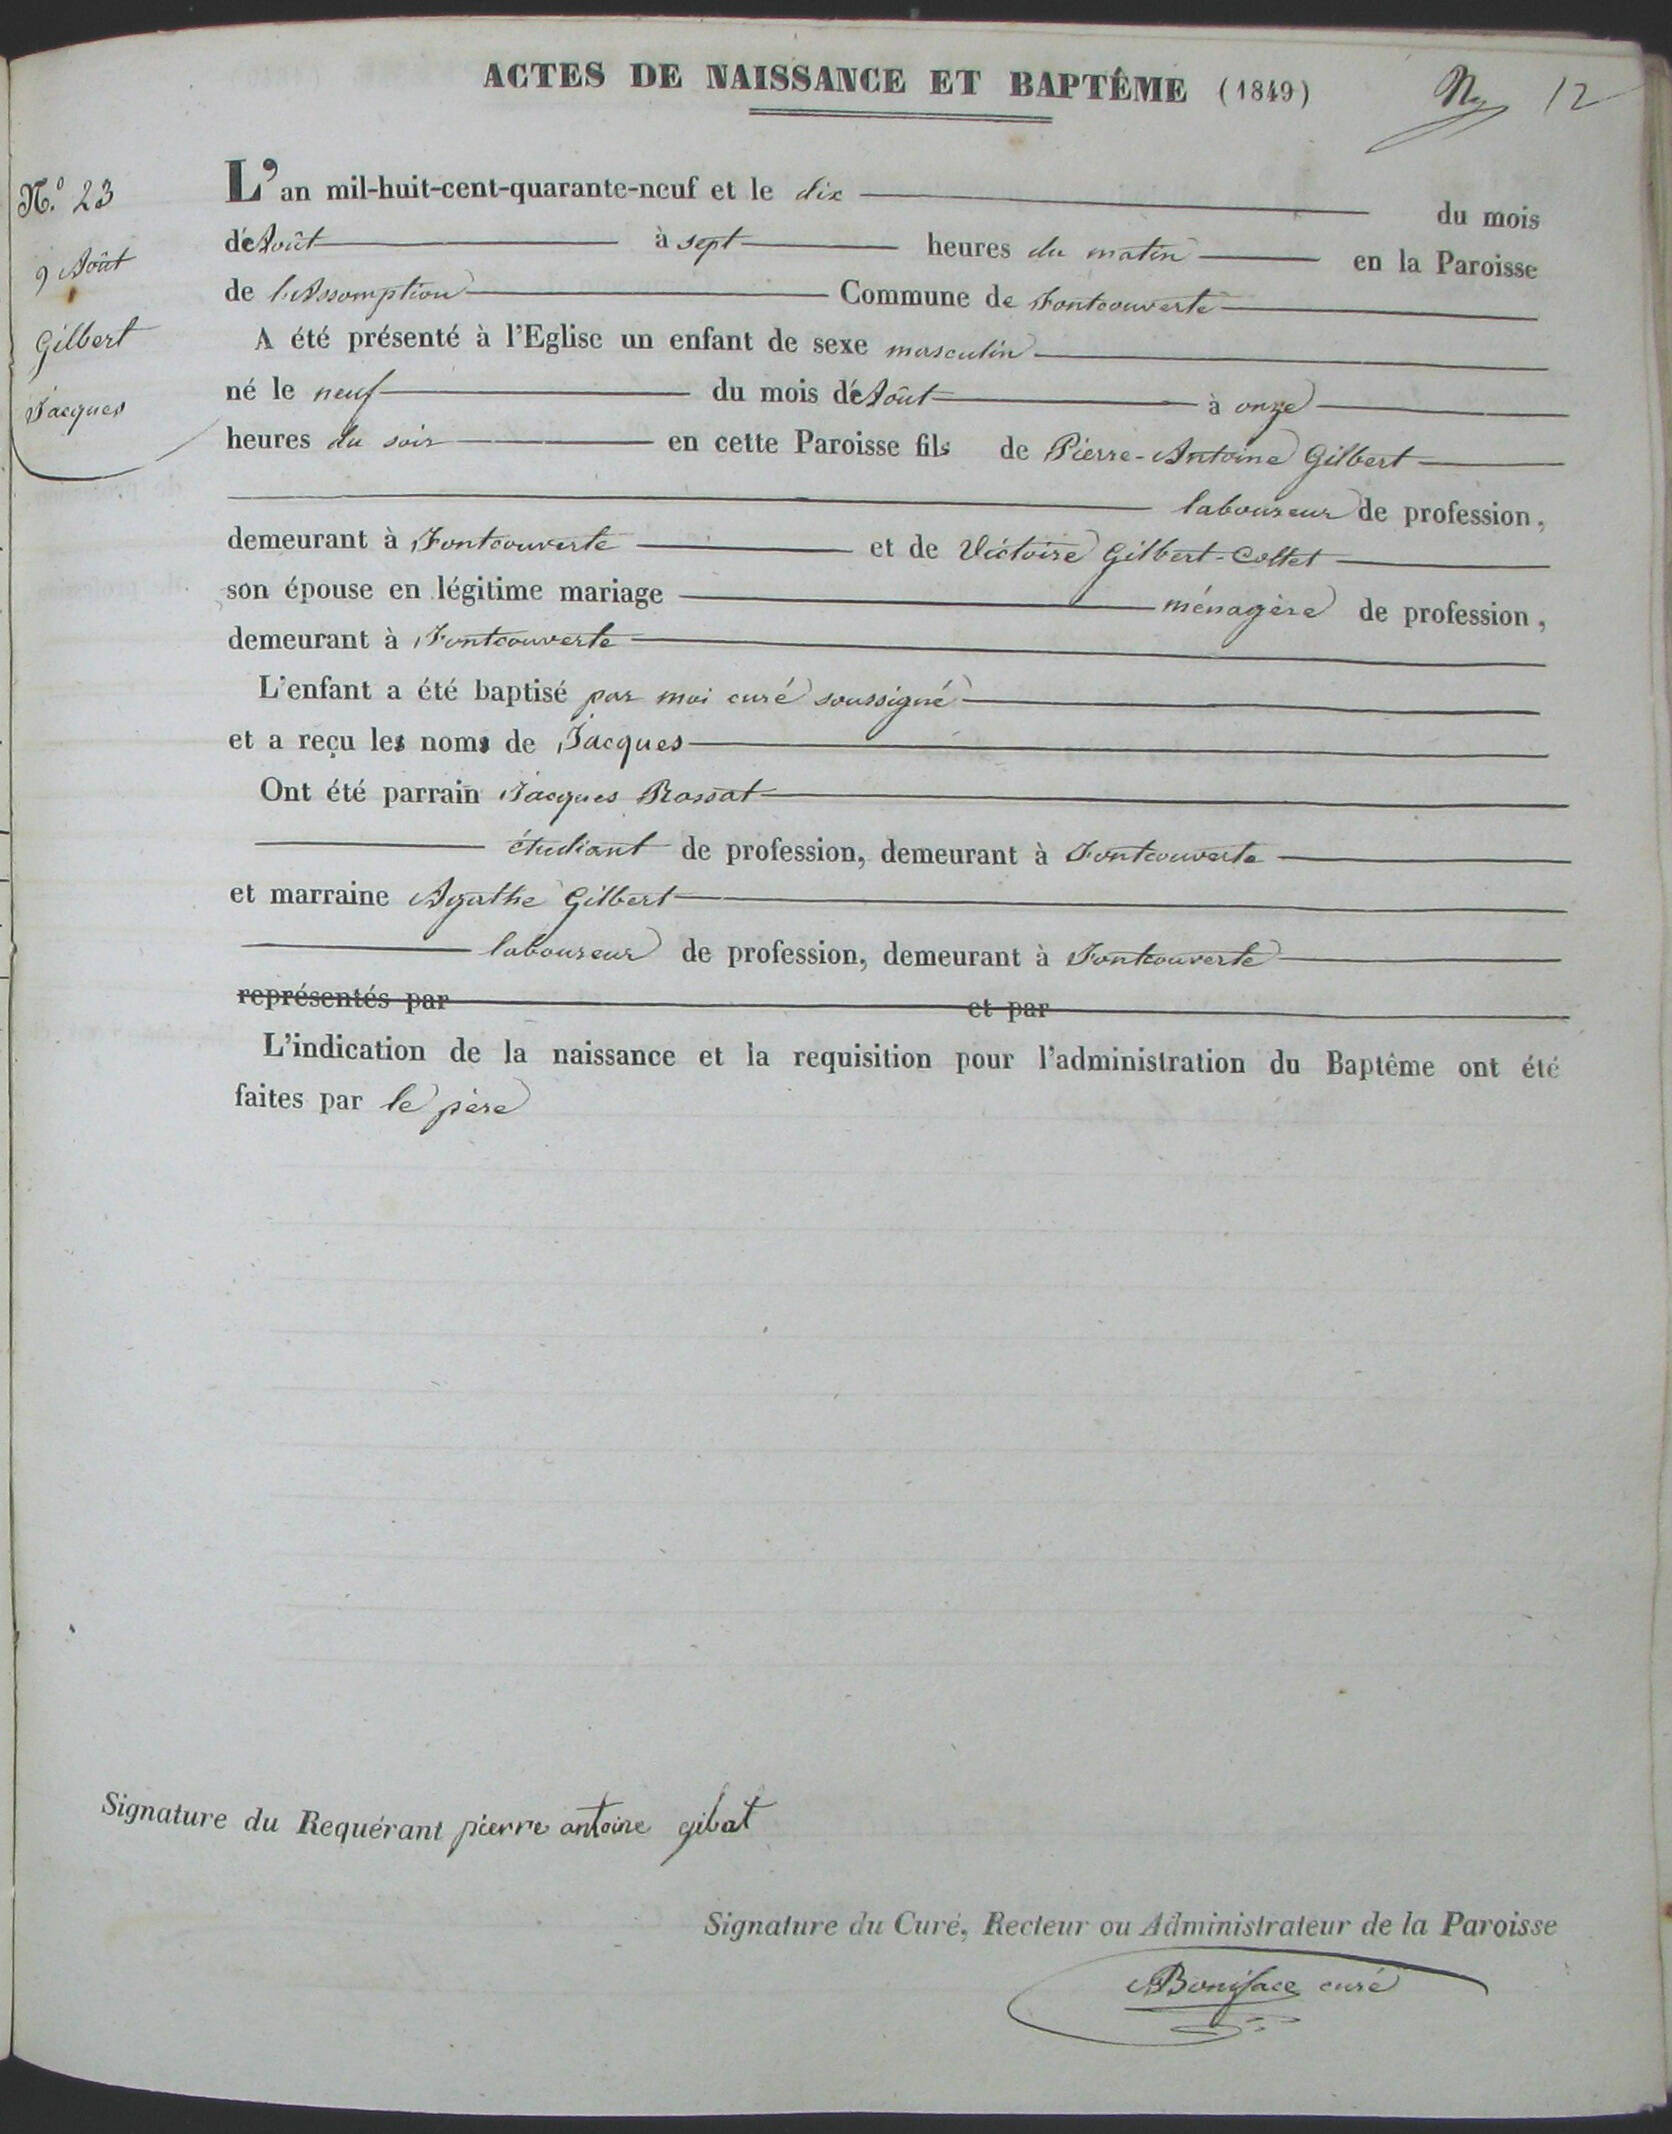 ACTES DE NAISSANCE ET BAPTÊME (1849)
12
N.º 23
9 Août
Gilbert
Jacques
L'an mil-huit-cent-quarante-neuf et le dix du mois
d'Août à sept heures du matin en la Paroisse
de l'Assomption Commune de Fontcouverte
A été présenté à l'Eglise un enfant de sexe masculin
né le neuf du mois d'Août à onze
heures du soir en cette Paroisse fils de Pierre-Antoine Gilbert
laboureur de profession,
demeurant à Fontcouverte et de Victoire Gilbert-Collet
son épouse en légitime mariage ménagère de profession,
demeurant à Fontcouverte
L'enfant a été baptisé par moi curé soussigné
et a reçu les noms de Jacques
Ont été parrain Jacques Rossat
étudiant de profession, demeurant à Fontcouverte
et marraine Agathe Gilbert
laboureur de profession, demeurant à Fontcouverte
représentés par et par
L'indication de la naissance et la requisition pour l'administration du Baptême ont été
faites par le père
Signature du Requérant pierre antoine gilbat
Signature du Curé, Recteur ou Administrateur de la Paroisse
Boniface curé